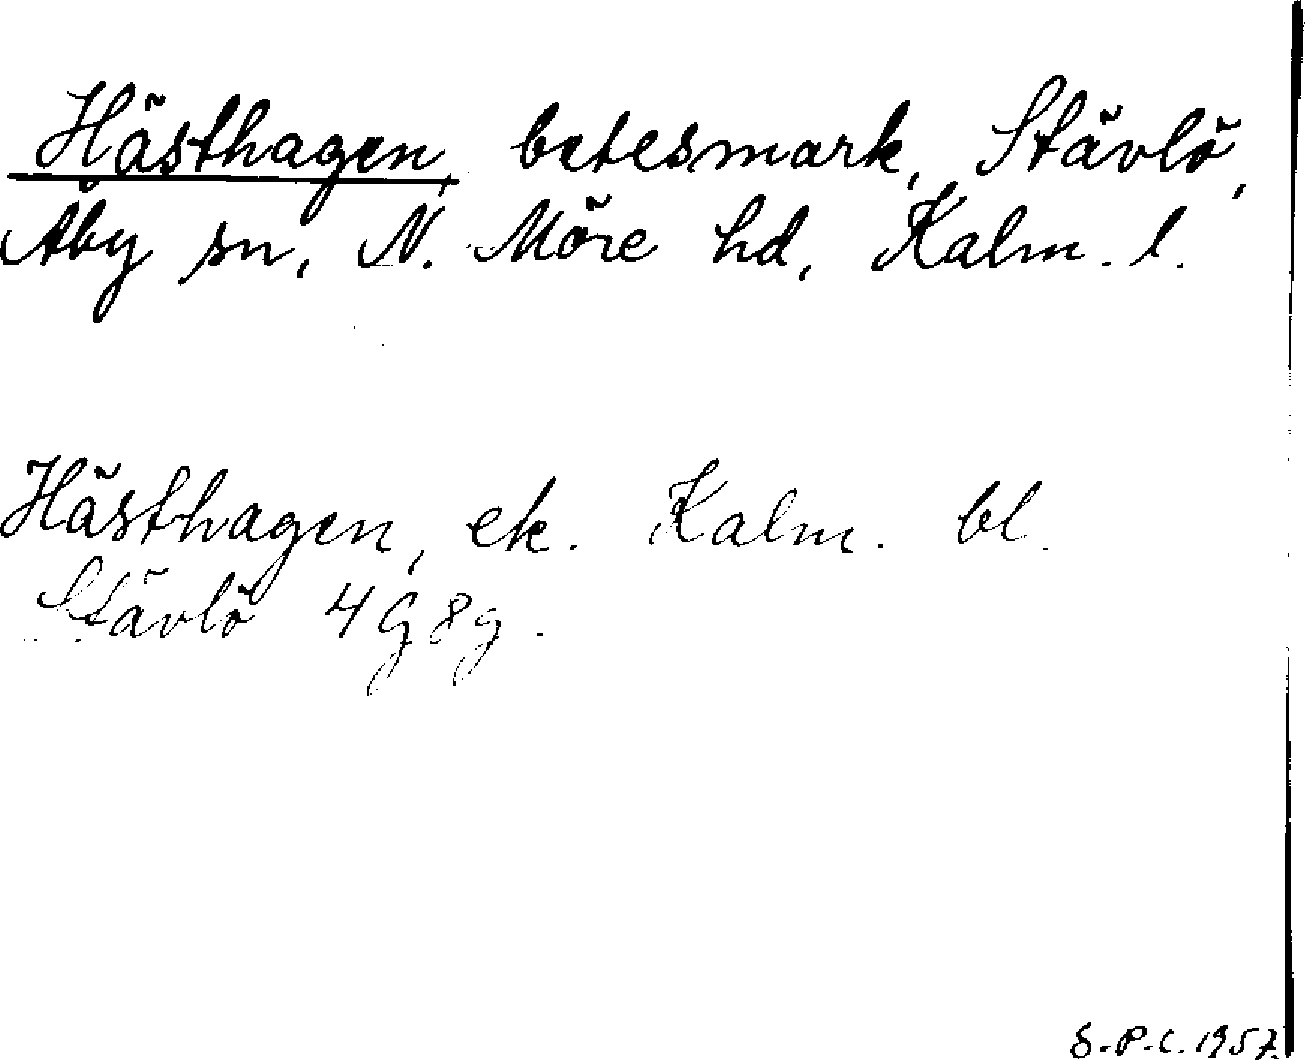 Hästhagen, betesmark, Stävlö,
Åby sn, N. Möre hd, Kalm. l.
Hästhagen, ek. Kalm. bl.
Stävlö 4G8g.
S.P.C. 1957